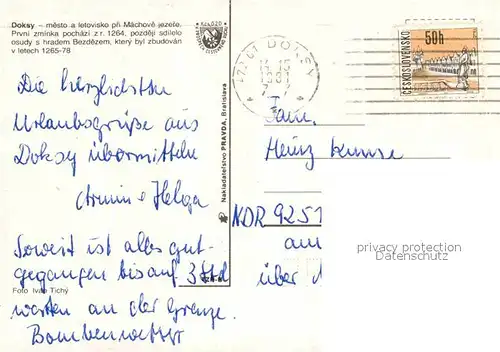 Doksy – město a letovisko při Máchově jezeře.
První zmínka pochází z r. 1264, později sdílelo
osudy s hradem Bezdězem, který byl zbudován
v letech 1265-78
Die herzlichsten
Urlaubsgrüße aus
Doksy übermitteln
Armin + Helga
Soweit ist alles gut-
gegangen bis auf 3 Std
warten an der Grenze.
Bombenwetter
Foto Ivan Tichý
Nakladatelství PRAVDA, Bratislava
DOKSY
ČESKOSLOVENSKO
50h
Fam.
Heinz Kunse
NDR 9251
am
über
privacy protection
Datenschutz